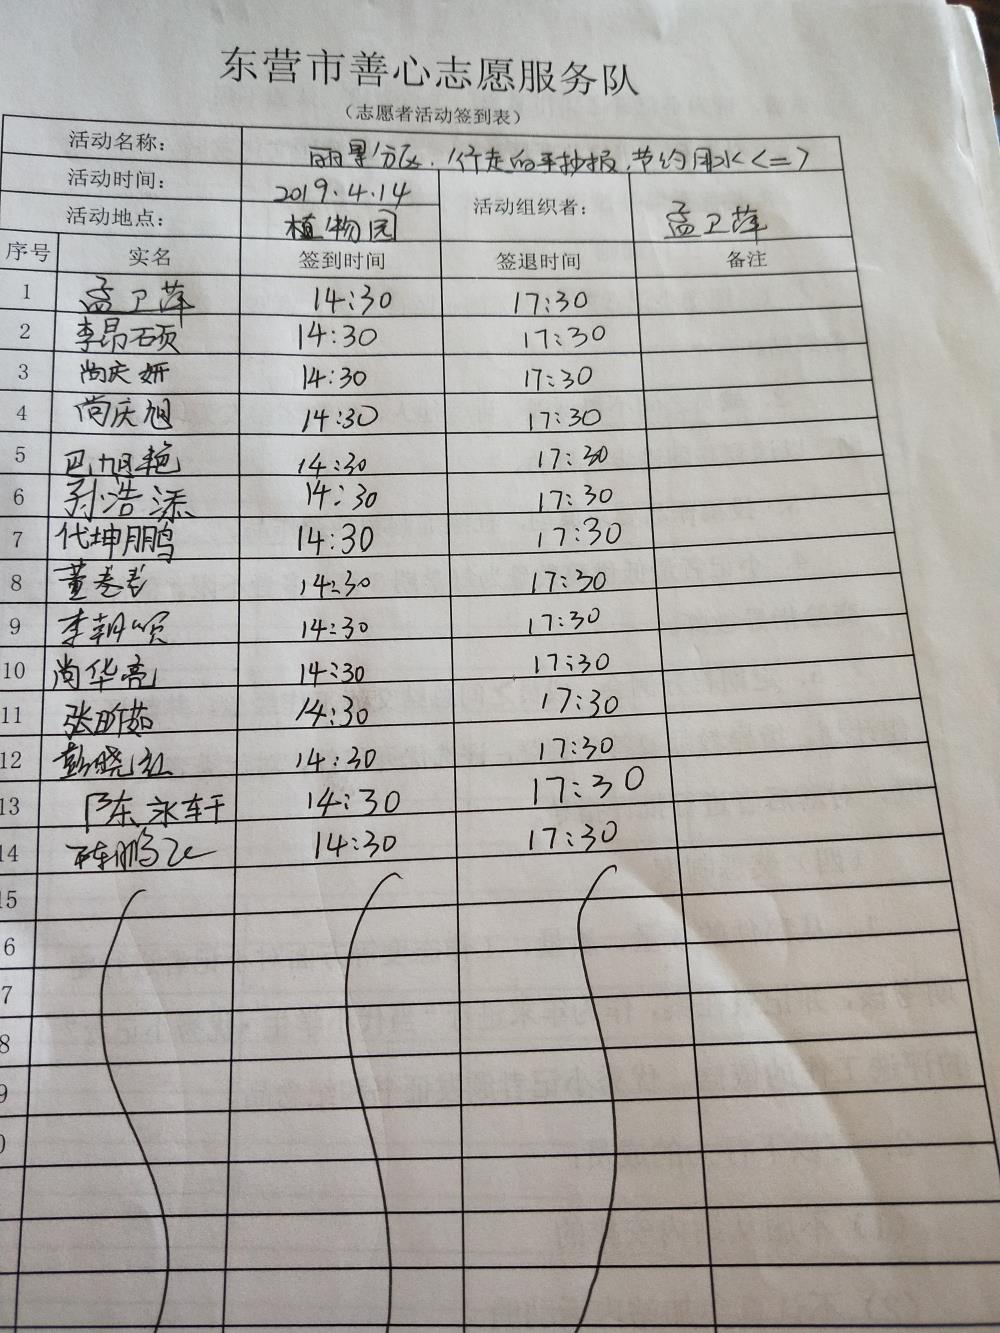 东营市善心志愿服务队
（志愿者活动签到表）
活动名称： 丽景分区.行走的手抄报.节约用水<二>
活动时间： 2019.4.14 活动组织者： 孟卫萍
活动地点： 植物园
序号 实名 签到时间 签退时间 备注
1 孟卫萍 14:30 17:30
2 李昂硕 14:30 17:30
3 尚庆妍 14:30 17:30
4 尚庆旭 14:30 17:30
5 巴旭艳 14:30 17:30
6 孙浩添 14:30 17:30
7 代坤鹏 14:30 17:30
8 董 14:30 17:30
9 李朝颂 14:30 17:30
10 尚华亮 14:30 17:30
11 张昕茹 14:30 17:30
12 彭晓红 14:30 17:30
13 陈永轩 14:30 17:30
14 陈鹏飞 14:30 17:30
15
6
7
8
9
0